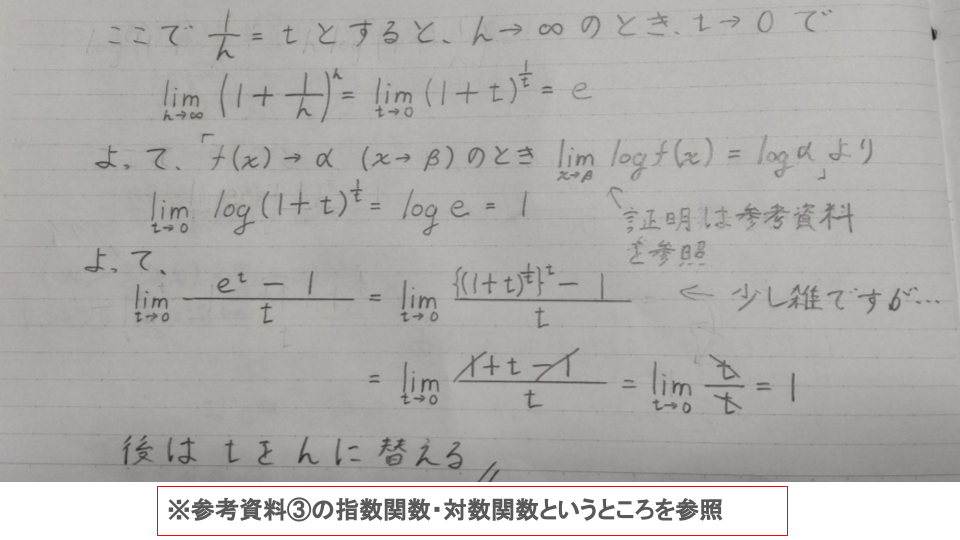 ここで 1/h = t とすると、h→∞ のとき、t→0 で
lim_{h→∞} (1 + 1/h)^h = lim_{t→0} (1+t)^{1/t} = e
よって、「f(x)→α (x→β)のとき lim_{x→β} log f(x) = log α」より
lim_{t→0} log(1+t)^{1/t} = log e = 1
↖証明は参考資料
を参照
よって、
lim_{t→0} (e^t - 1)/t = lim_{t→0} ({(1+t)^{1/t}}^t - 1)/t ← 少し雑ですが…
= lim_{t→0} (1+t-1)/t = lim_{t→0} t/t = 1
後は t を h に替える //
※参考資料③の指数関数・対数関数というところを参照